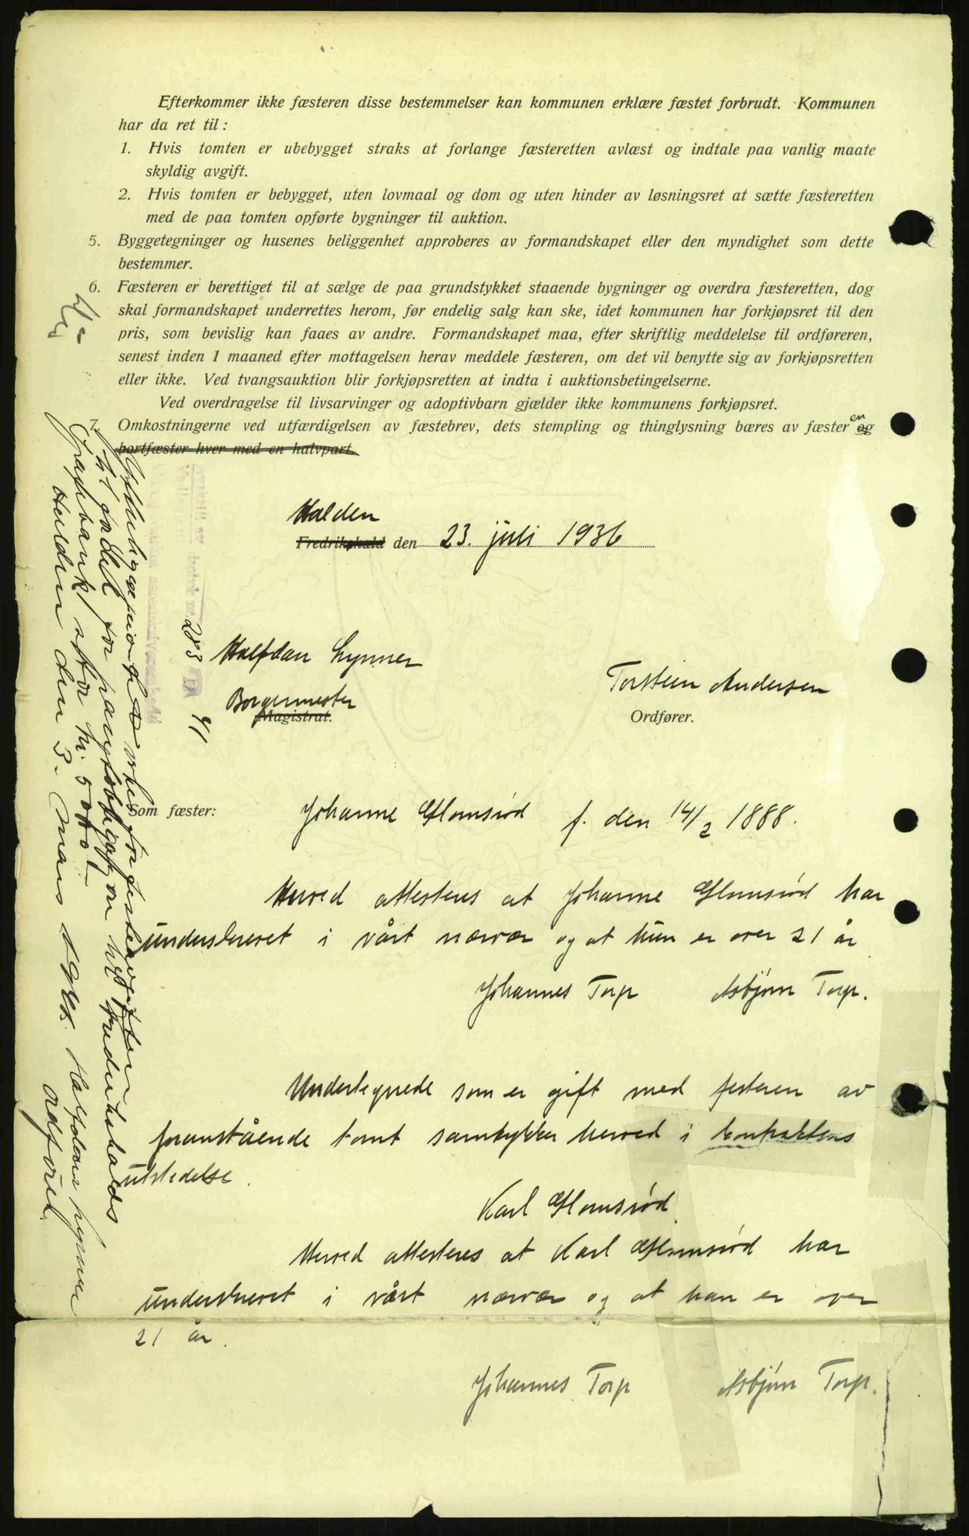 Efterkommer ikke fæsteren disse bestemmelser kan kommunen erklære fæstet forbrudt. Kommunen
har da ret til:
1. Hvis tomten er ubebygget straks at forlange fæsteretten avlæst og indtale paa vanlig maate
skyldig avgift.
2. Hvis tomten er bebygget, uten lovmaal og dom og uten hinder av løsningsret at sætte fæsteretten
med de paa tomten opførte bygninger til auktion.
5. Byggetegninger og husenes beliggenhet approberes av formandskapet eller den myndighet som dette
bestemmer.
6. Fæsteren er berettiget til at sælge de paa grundstykket staaende bygninger og overdra fæsteretten, dog
skal formandskapet underrettes herom, før endelig salg kan ske, idet kommunen har forkjøpsret til den
pris, som bevislig kan faaes av andre. Formandskapet maa, efter skriftlig meddelelse til ordføreren,
senest inden 1 maaned efter mottagelsen herav meddele fæsteren, om det vil benytte sig av forkjøpsretten
eller ikke. Ved tvangsauktion blir forkjøpsretten at indta i auktionsbetingelserne.
Ved overdragelse til livsarvinger og adoptivbarn gjælder ikke kommunens forkjøpsret.
7. Omkostningerne ved utfærdigelsen av fæstebrev, dets stempling og thinglysning bæres av fæsteren og
bortfæster hver med en halvpart.
Halden
Fredrikshald den 23. juli 1936
Halfdan Lynner
Torstein Andersen
Borgermester
Magistrat.
Ordfører.
Som fæster:
Johanne Glomsrød f. den 14/2 1888.
Herved attesteres at Johanne Glomsrød har
underskrevet i vårt nærvær og at hun er over 21 år
Johannes Torp Asbjørn Torp.
Undertegnede som er gift med festeren av
foranstående tomt samtykker herved i kontraktens
utstedelse.
Karl Glomsrød.
Herved attesteres at Karl Glomsrød har
underskrevet i vårt nærvær og at han er over
21 år.
Johannes Torp Asbjørn Torp.
283
Halden den 3. mars Halfdan Lynner
ordfører